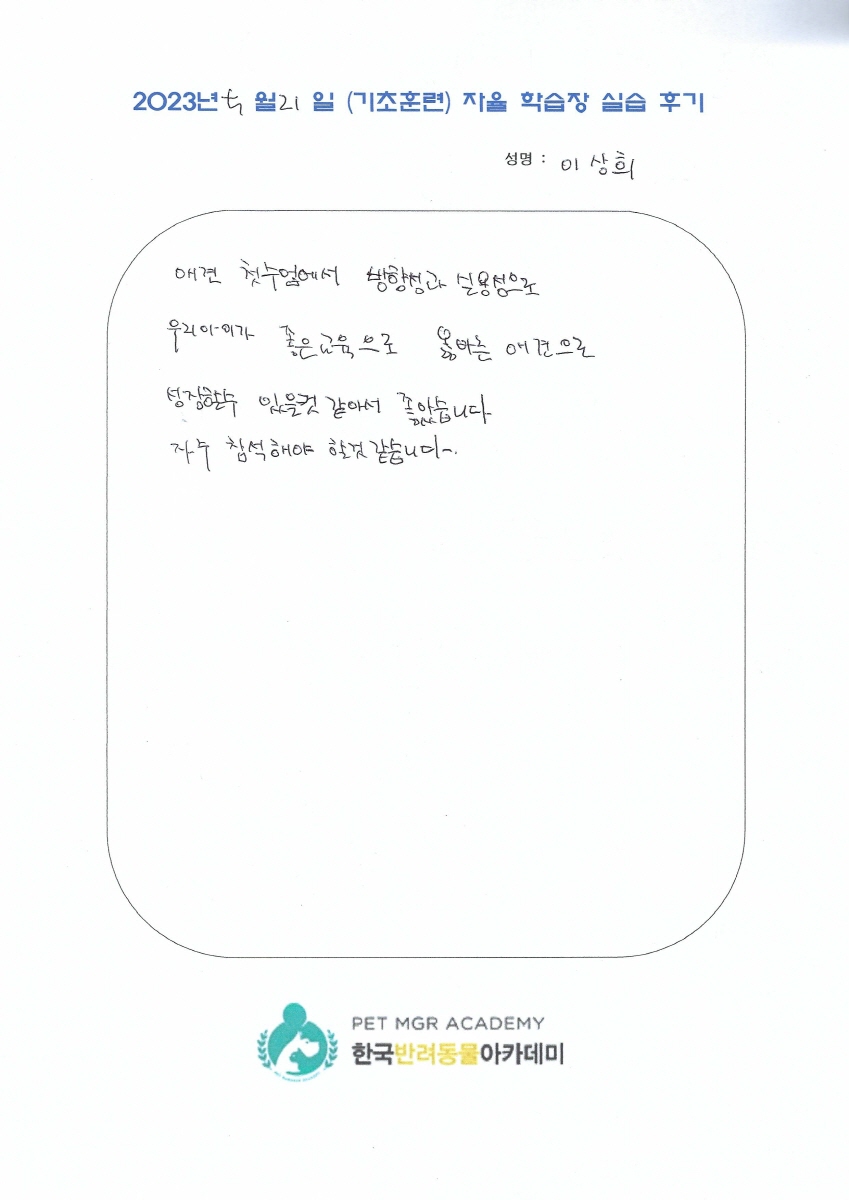 2023년 5 월 21 일 (기초훈련) 자율 학습장 실습 후기
성명 : 이상희
애견 첫수업에서 방향성과 실용성으로
우리아이가 좋은교육으로 옳바른 애견으로
성장할수 있을것 같아서 좋았습니다
자주 참석해야 할것같습니다~.
PET MGR ACADEMY
한국반려동물아카데미